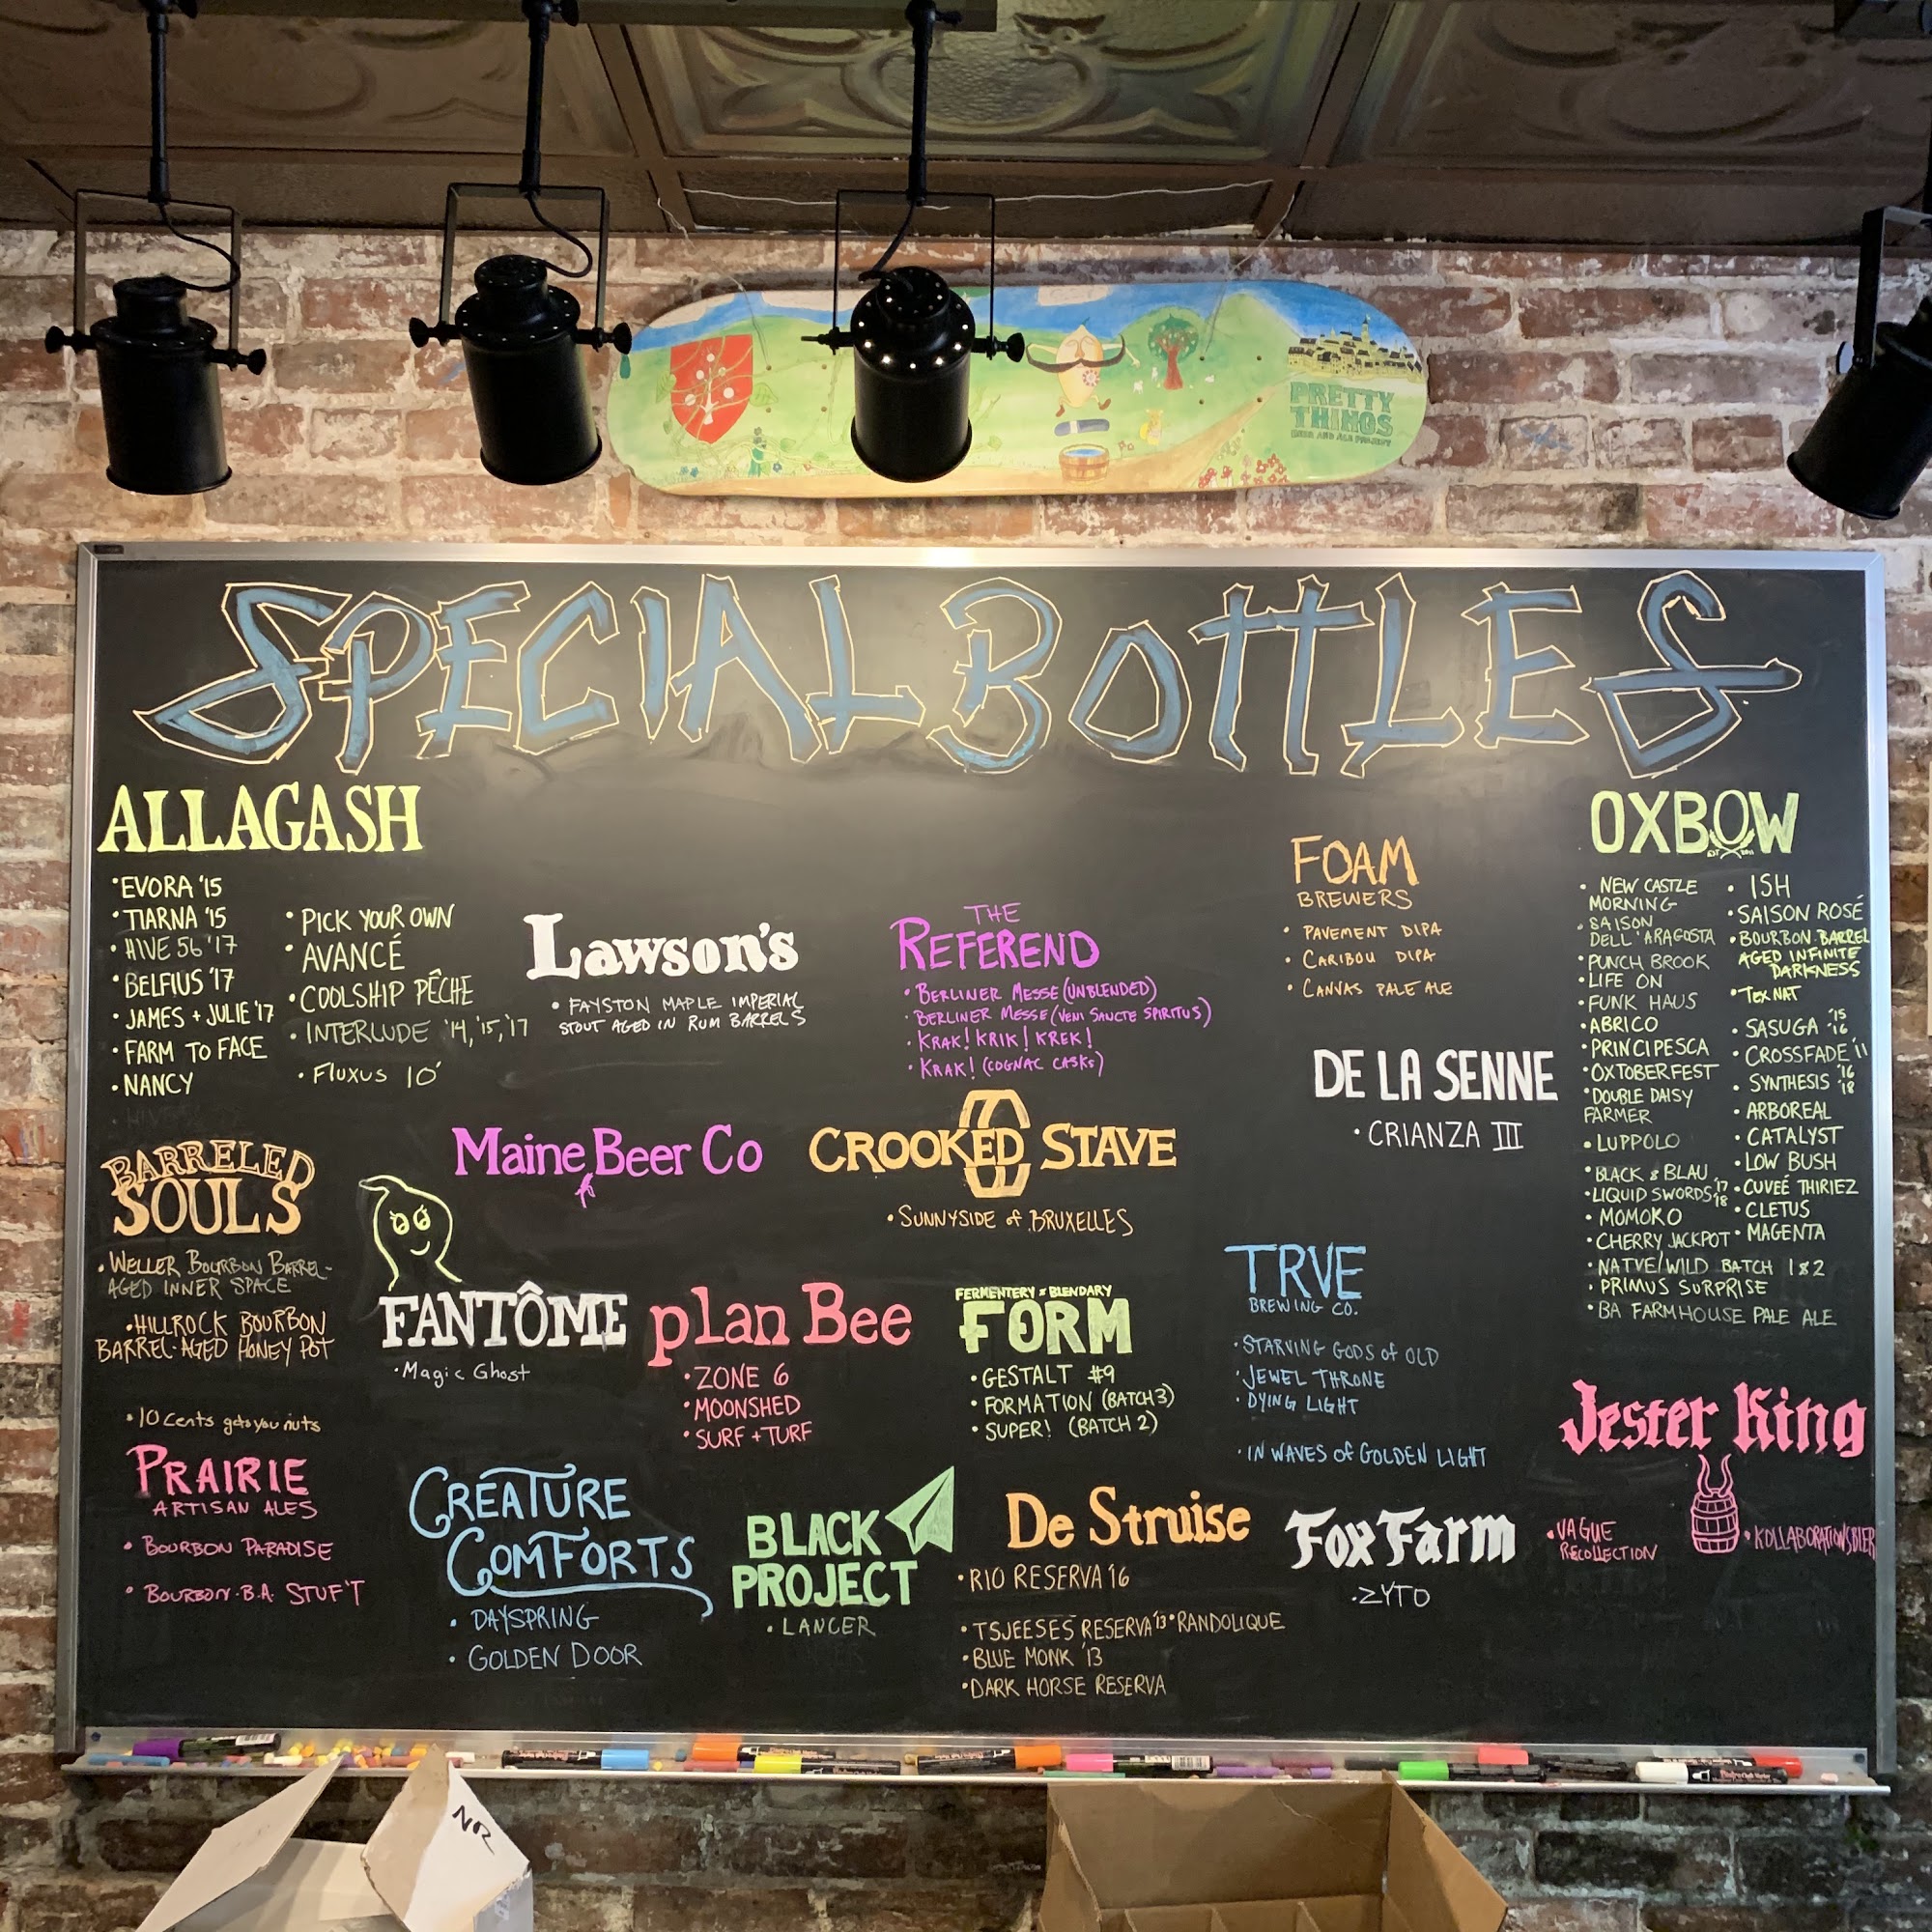 PRETTY
THINGS
BEER AND ALE PROJECT
SPECIAL BOTTLES
ALLAGASH
• EVORA '15
• TIARNA '15
• HIVE 56 '17
• BELFIUS '17
• JAMES + JULIE '17
• FARM TO FACE
• NANCY
• PICK YOUR OWN
• AVANCÉ
• COOLSHIP PÊCHE
• INTERLUDE '14, '15, '17
• FLUXUS 10'
Lawson's
• FAYSTON MAPLE IMPERIAL
STOUT AGED IN RUM BARRELS
THE
REFEREND
• BERLINER MESSE (UNBLENDED)
• BERLINER MESSE (VENI SANCTE SPIRITUS)
• KRAK! KRIK! KREK!
• KRAK! (COGNAC CASKS)
FOAM
BREWERS
• PAVEMENT DIPA
• CARIBOU DIPA
• CANVAS PALE ALE
DE LA SENNE
• CRIANZA III
OXBOW
• NEW CASTLE
MORNING
• SAISON
DELL'ARAGOSTA
• PUNCH BROOK
• LIFE ON
• FUNK HAUS
• ABRICO
• PRINCIPESCA
• OXTOBERFEST
• DOUBLE DAISY
FARMER
• LUPPOLO
• BLACK & BLAU
• LIQUID SWORDS '17 '18
• MOMOKO
• CHERRY JACKPOT
• NATVE/WILD BATCH 1 & 2
• PRIMUS SURPRISE
• BA FARMHOUSE PALE ALE
• ISH
• SAISON ROSÉ
• BOURBON BARREL
AGED INFINITE
DARKNESS
• TEX NAT
• SASUGA '15 '16
• CROSSFADE '11
• SYNTHESIS '16 '18
• ARBOREAL
• CATALYST
• LOW BUSH
• CUVEÉ THIRIEZ
• CLETUS
• MAGENTA
Maine Beer Co
CROOKED STAVE
• SUNNYSIDE of BRUXELLES
BARRELED
SOULS
• WELLER BOURBON BARREL-
AGED INNER SPACE
• HILLROCK BOURBON
BARREL-AGED HONEY POT
• 10 cents gets you nuts
FANTÔME
• Magic Ghost
plan Bee
• ZONE 6
• MOONSHED
• SURF + TURF
FERMENTERY & BLENDARY
FORM
• GESTALT #9
• FORMATION (BATCH 3)
• SUPER! (BATCH 2)
TRVE
BREWING CO.
• STARVING GODS of OLD
• JEWEL THRONE
• DYING LIGHT
• IN WAVES of GOLDEN LIGHT
Jester King
• VAGUE
RECOLLECTION
• KOLLABORATIONSBIER
PRAIRIE
ARTISAN ALES
• BOURBON PARADISE
• BOURBON B.A. STUF'T
CREATURE
COMFORTS
• DAYSPRING
• GOLDEN DOOR
BLACK
PROJECT
• LANCER
De Struise
• RIO RESERVA '16
• TSJEESES RESERVA '13 • RANDOLIQUE
• BLUE MONK '13
• DARK HORSE RESERVA
Fox Farm
• ZYTO
NR